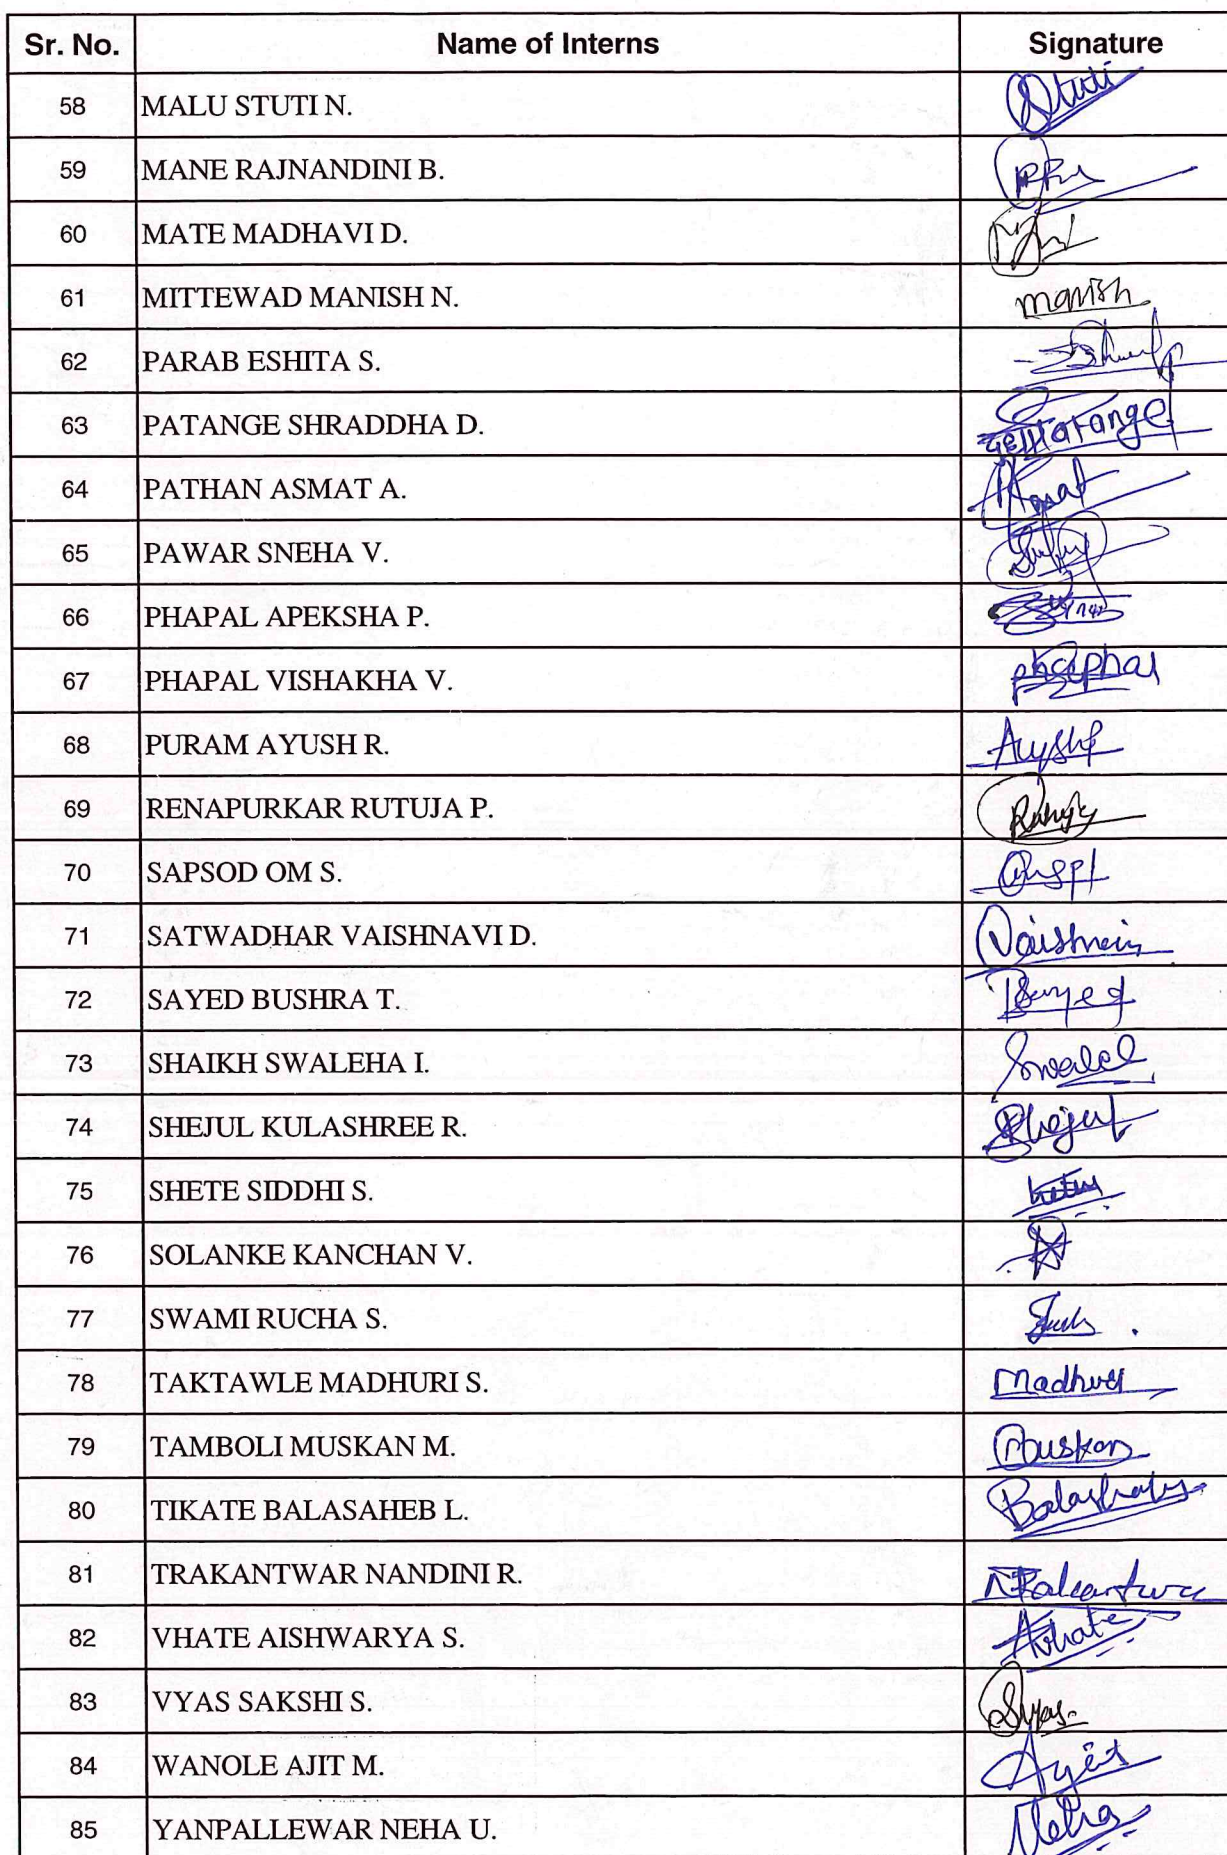 Sr. No. Name of Interns Signature
58 MALU STUTI N. Stuti
59 MANE RAJNANDINI B.
60 MATE MADHAVI D.
61 MITTEWAD MANISH N. manish
62 PARAB ESHITA S.
63 PATANGE SHRADDHA D.
64 PATHAN ASMAT A. Asmat
65 PAWAR SNEHA V.
66 PHAPAL APEKSHA P.
67 PHAPAL VISHAKHA V.
68 PURAM AYUSH R.
69 RENAPURKAR RUTUJA P.
70 SAPSOD OM S.
71 SATWADHAR VAISHNAVI D.
72 SAYED BUSHRA T. BSayed
73 SHAIKH SWALEHA I.
74 SHEJUL KULASHREE R. Shejul
75 SHETE SIDDHI S.
76 SOLANKE KANCHAN V.
77 SWAMI RUCHA S.
78 TAKTAWLE MADHURI S. Madhuri
79 TAMBOLI MUSKAN M. Muskan
80 TIKATE BALASAHEB L.
81 TRAKANTWAR NANDINI R.
82 VHATE AISHWARYA S. AVhate
83 VYAS SAKSHI S. SVyas.
84 WANOLE AJIT M. Ajit
85 YANPALLEWAR NEHA U. Neha